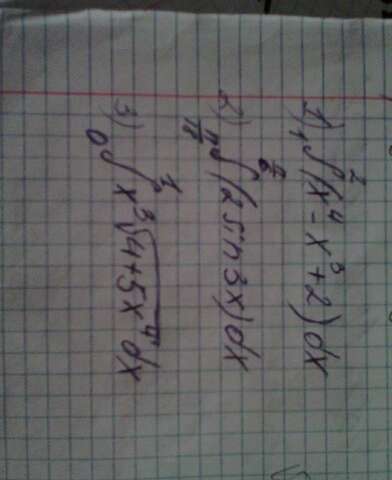 1) ∫₁² (x⁴ - x³ + 2) dx
2) ∫ (2 sin 3x) dx
3) ∫₀¹ x³ √4+5x⁴ dx